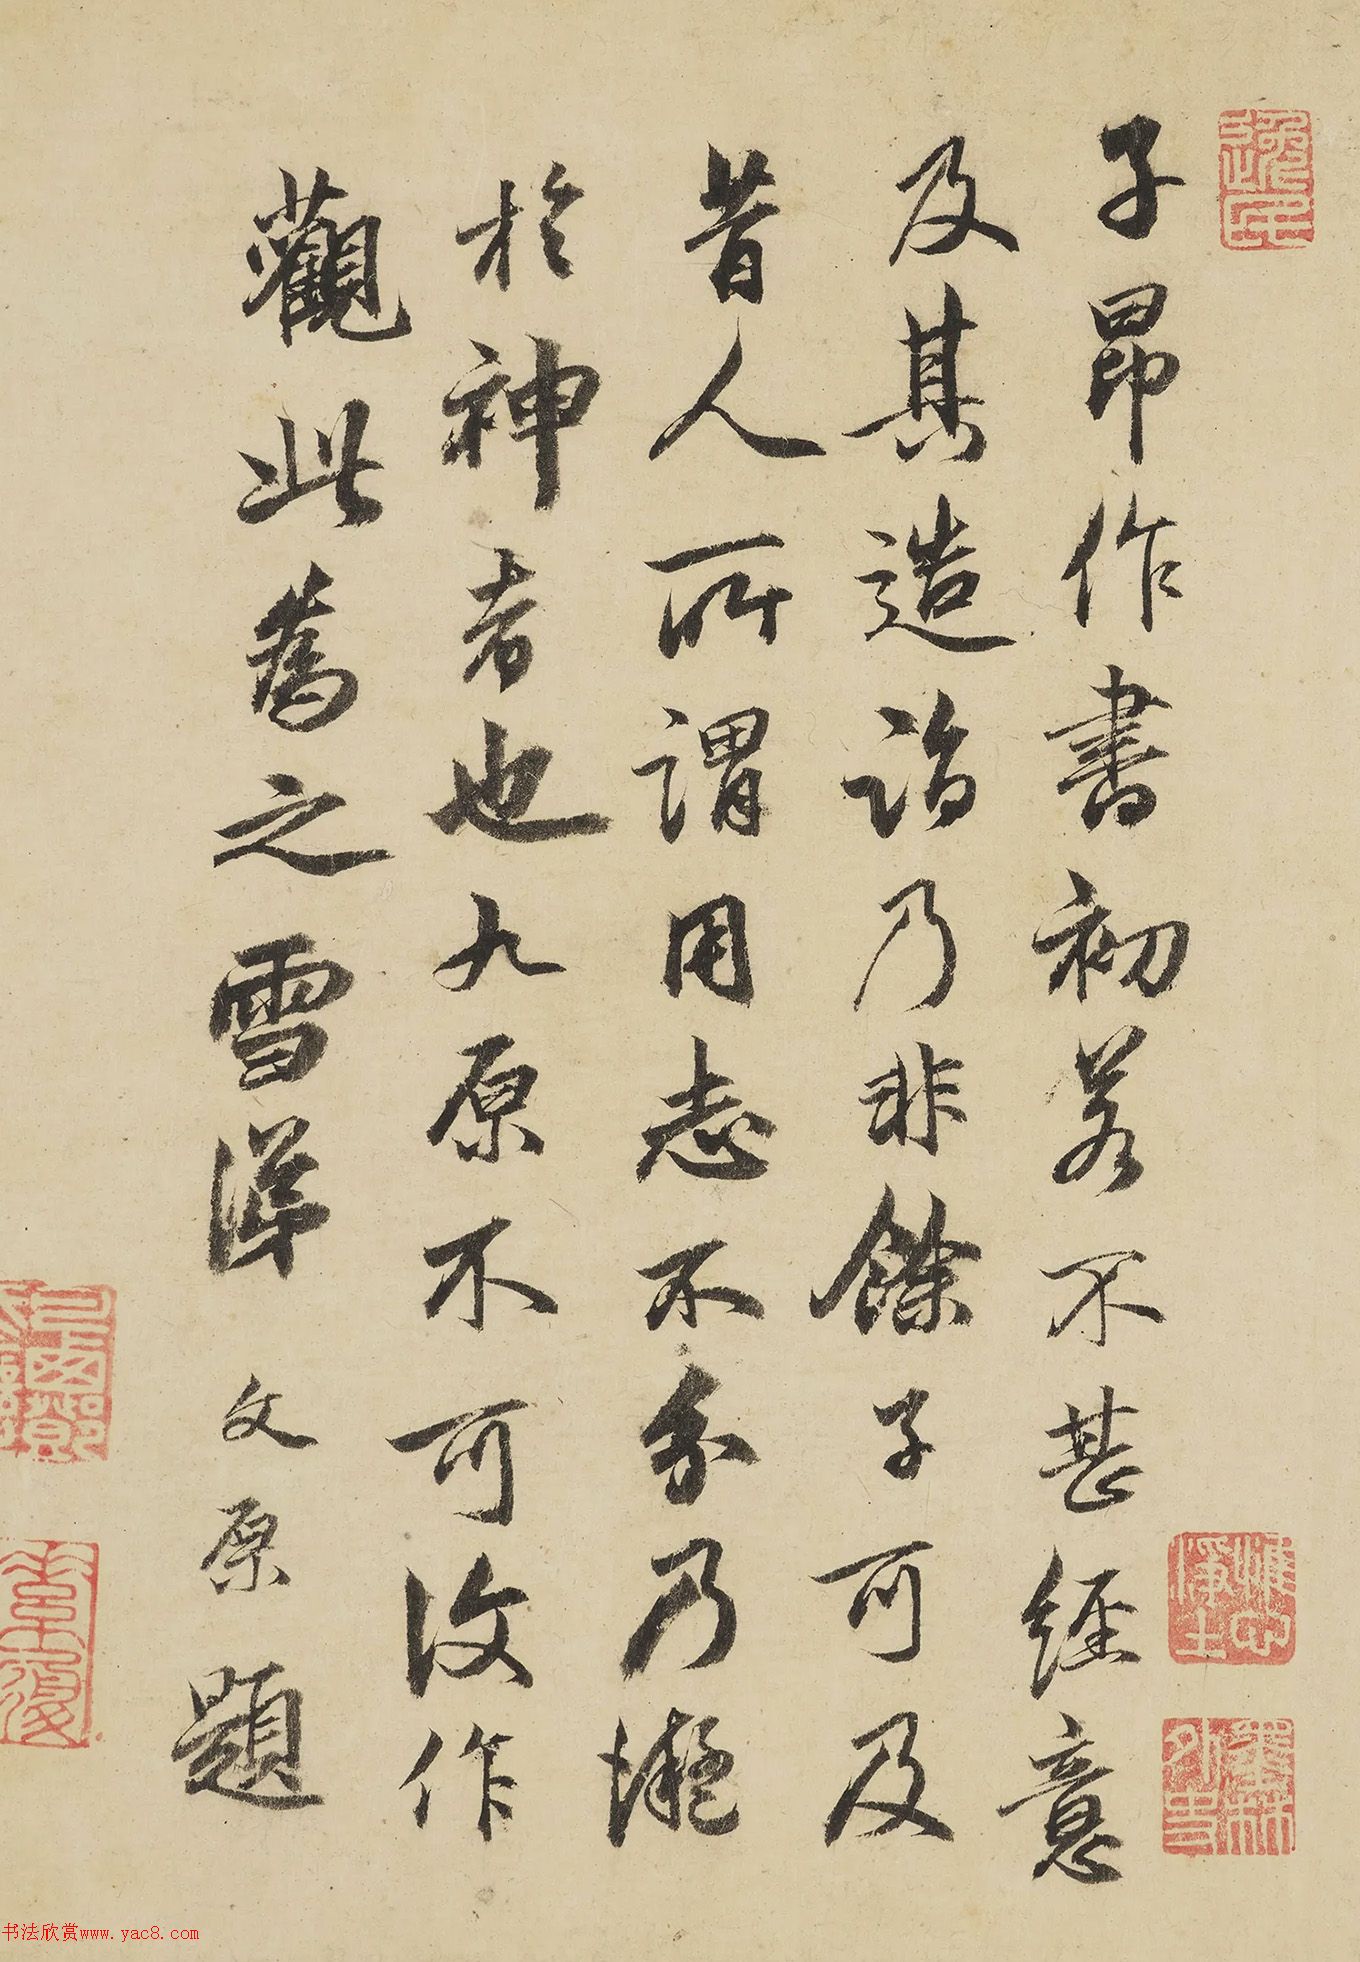 子昂作書初若不甚經意
及其造詣乃非餘子可及
昔人所謂用志不分乃凝
於神者也九原不可復作
觀此為之雪涕 文原題
惟心淨土
书法欣赏www.yac8.com